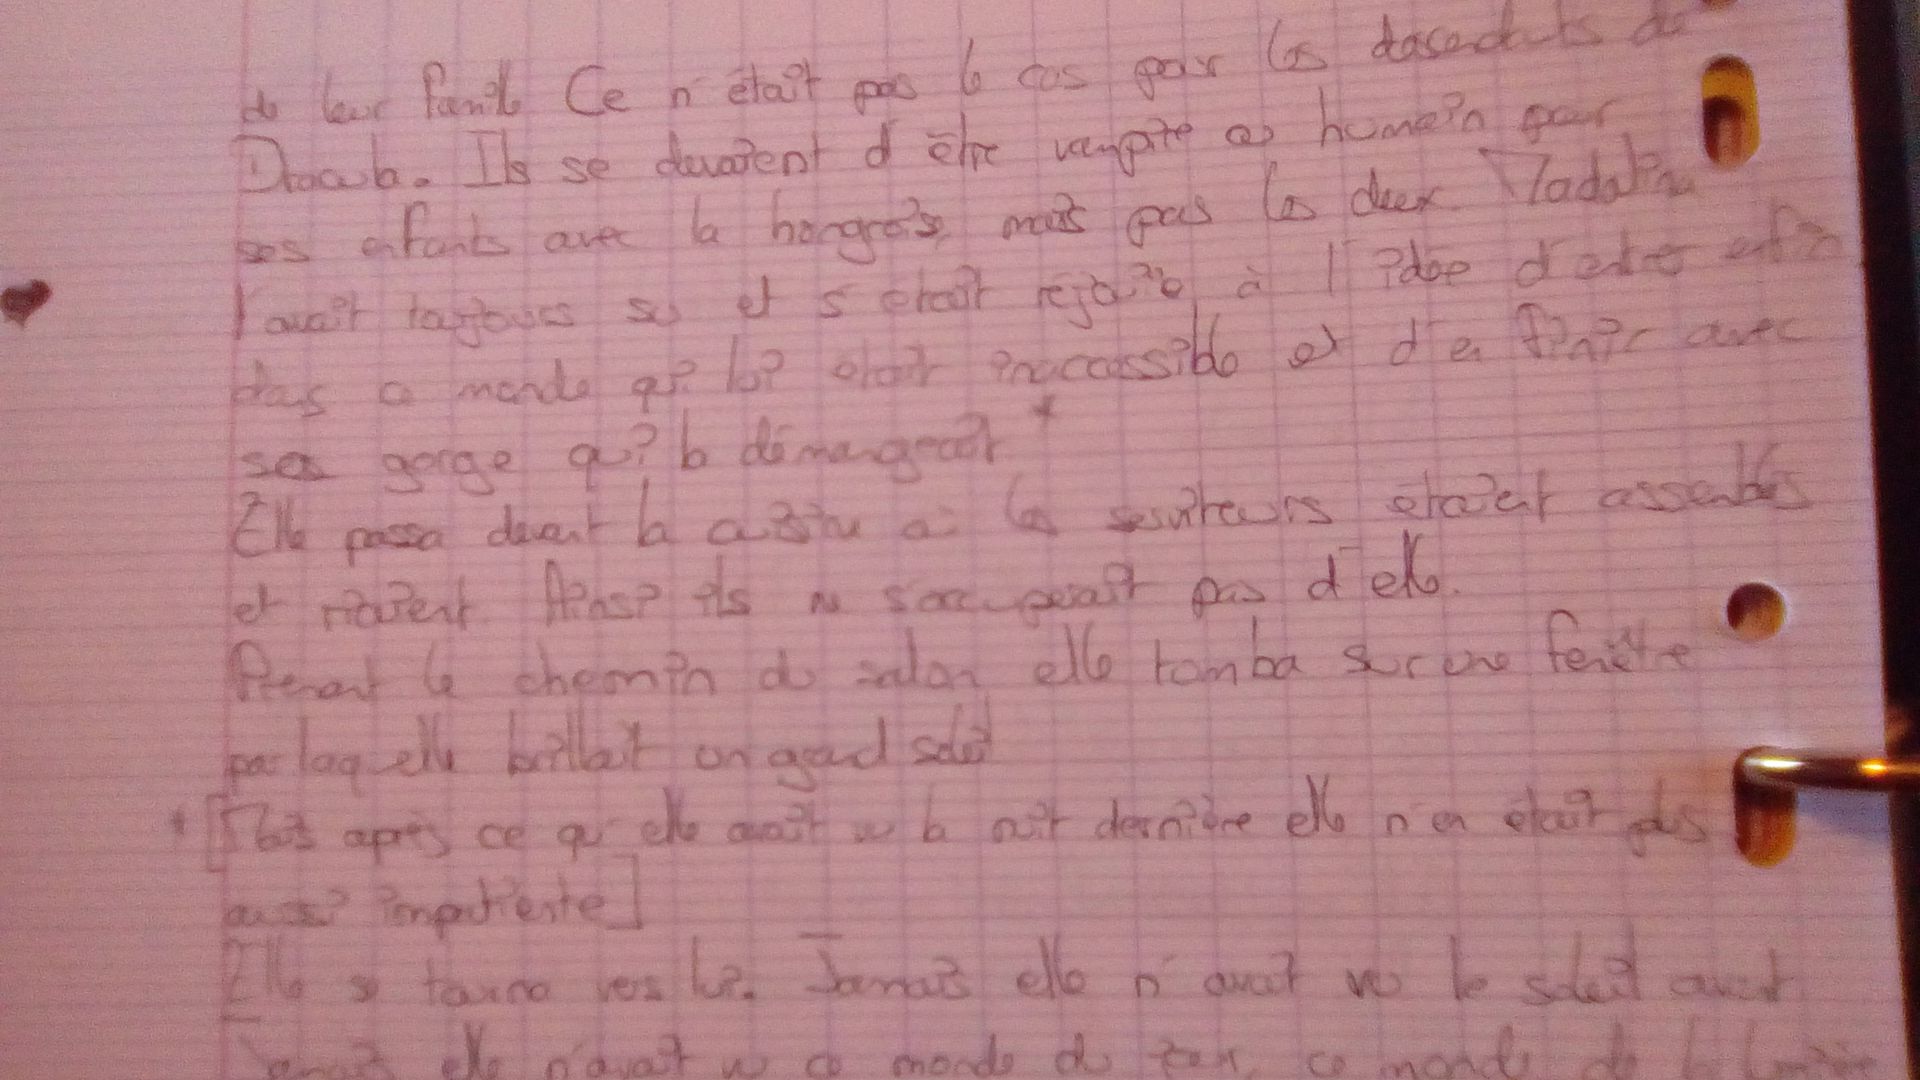 de leur famille Ce n'était pas le cas pour les descendants de
Dracula. Ils se devaient d'être vampire ou humain pour
ses enfants avec la hongroise, mais pas les deux
l'avait toujours su et s'était réjouie à l'idée d'entrer enfin
dans ce monde qui lui était inaccessible et d'en finir avec
sa gorge qui la démangeait *
Elle passa devant la cuisine où les serviteurs étaient assemblés
et riaient Ainsi ils ne s'occupait pas d'elle.
Prenant le chemin du salon, elle tomba sur une fenêtre
par laquelle brillait un grand soleil
* [Mais après ce qu'elle avait vu la nuit dernière elle n'en était plus
aussi impatiente]
Elle se tourna vers lui. Jamais elle n'avait vu le soleil avant
Jamais elle n'avait vu ce monde du jour, ce monde de la lumière